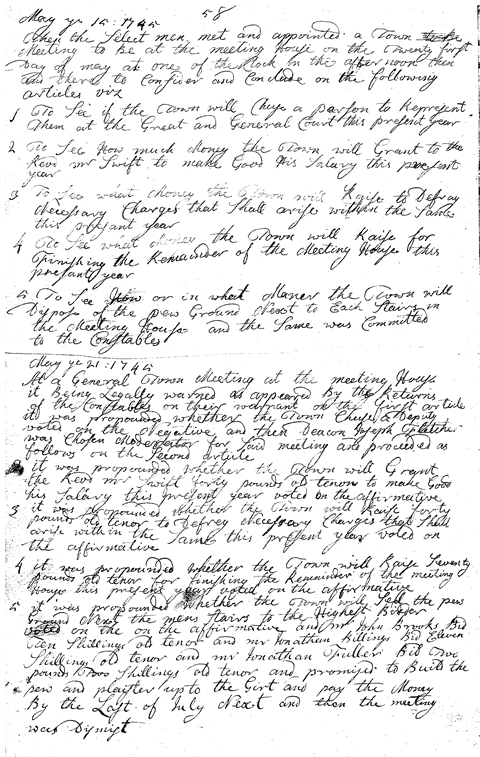 58
May ye 15: 1745
When the Select men met and appointed a Town to be
Meeting to be at the meeting House on the Twenty first
Day of may at one of the Clock in the after noon then
and there to Confider and Conclude on the following
articles viz
1 To See if the Town will Chuse a parson to Represent
Them at the Great and General Court this present year
2 To See How much Money the Town will Grant to the
Revd mr Swift to make Good His Salary this present
year
3 To See what Money the Town will Raise to Defray
Necessary Charges that Shall arise within the Same
this present year
4 To See what Money the Town will Raise for
Finishing the Remainder of the Meeting House this
present year
5 To See How or in what Maner the Town will
Dispose of the pew Ground Next to Each Stairs in
the Meeting House and the Same was Committed
to the Constables
May ye 21: 1745
At a General Town Meeting at the meeting House
it Being Legally warned as appeared By the Returns
of the Constables on their warrant on the first article
it was propounded whether the Town Chuse a Deputy
voted on the negative and then Deacon Joseph Fletcher
was Chosen Moderator for Said meeting and proceeded as
follows on the Second article
it was propounded whether the Town will Grant
the Revd mr Swift forty pounds old tenor to make Good
his Salary this present year voted on the affirmative
3 it was propounded whether the Town will Raise forty
pounds old tenor to Defrey Necessary Charges that Shall
arise within the Same this present year voted on
the affirmative
4 it was propounded whether the Town will Raise Seventy
pounds old tenor for finishing the Remainder of the meeting
House this present year voted on the affirmative
5 it was propounded whether the Town will Sell the pew
Ground Next the mens Stairs to the Highest Bidder
voted on the on the affirmative and mr John Brooks Bid
Teen Shillings old tenor and mr Jonathan Billings Bid Eleven
Shillings old tenor and mr Jonathan Fuller Bid Two
pounds Two Shillings old tenor and promised to Build the
pew and plaister up to the Girt and pay the Money
By the Last of July Next and then the meeting
was Dismist